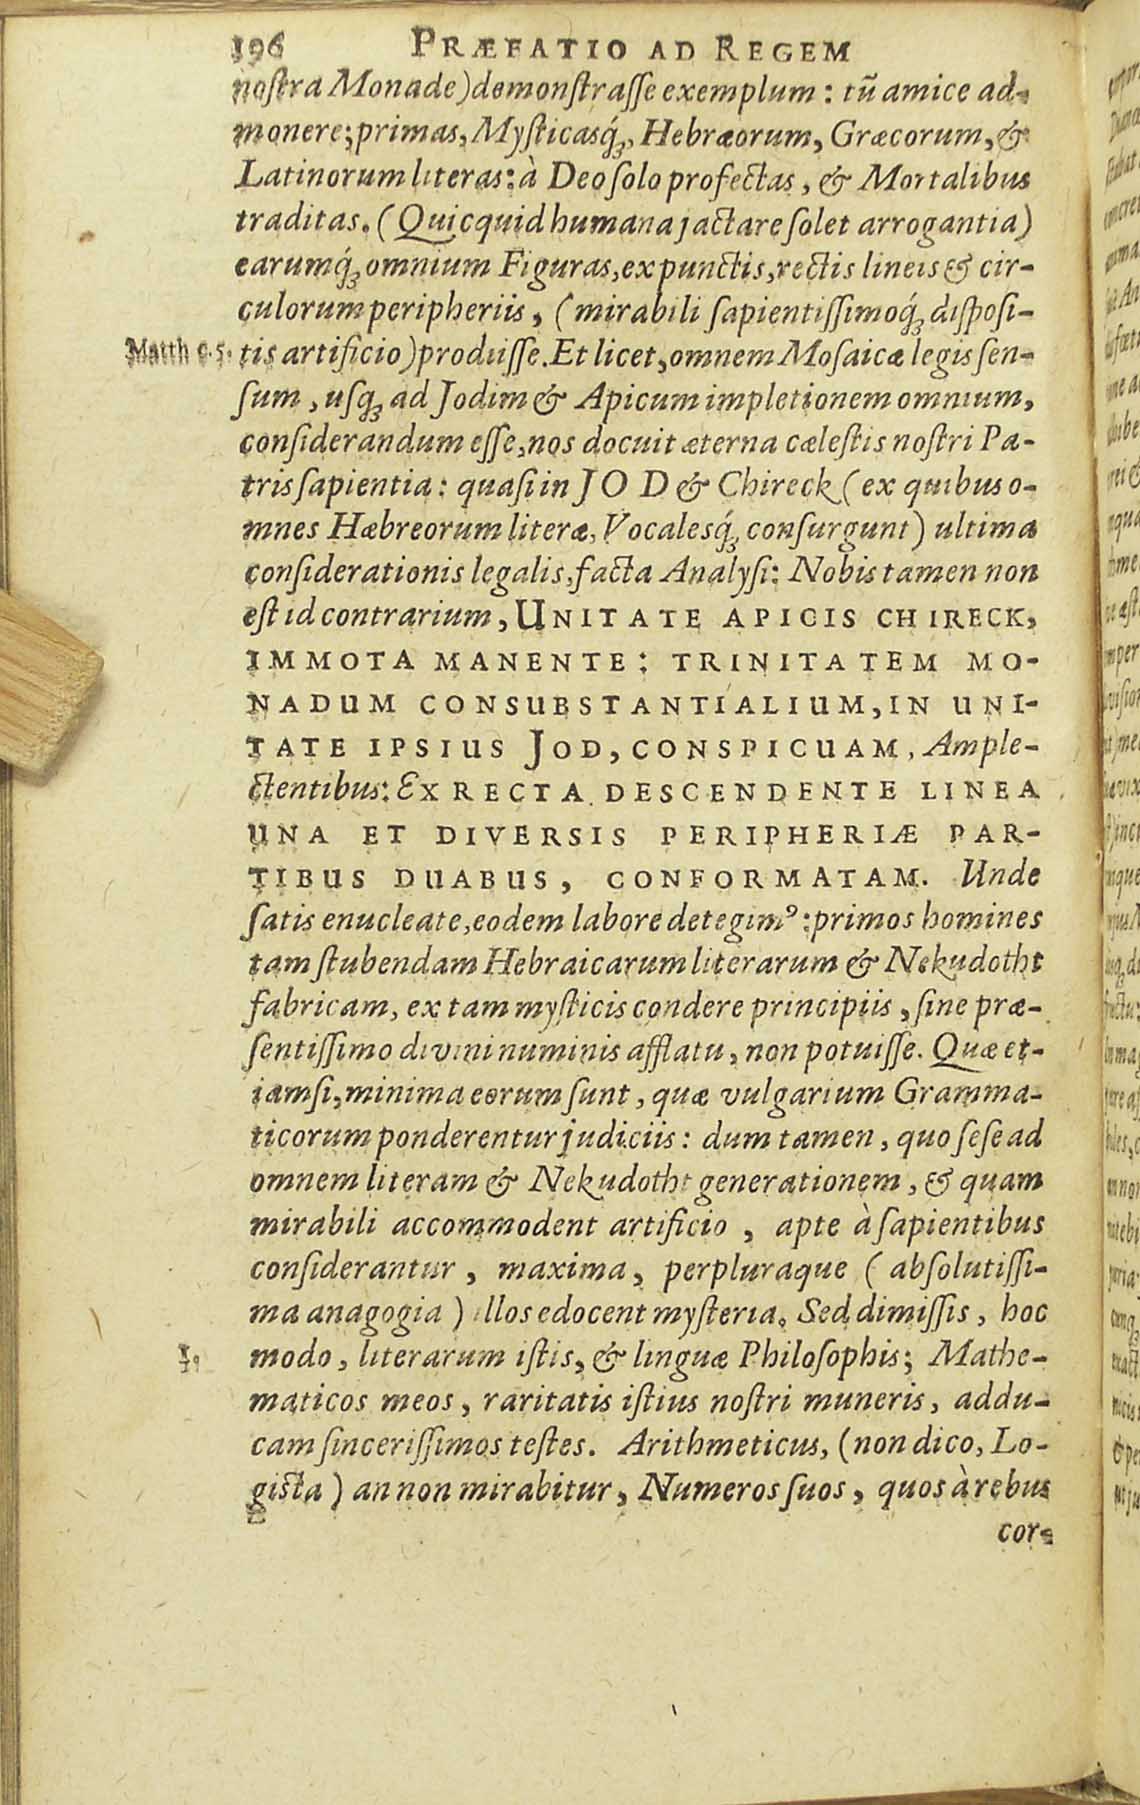 196 PRÆFATIO AD REGEM
nostra Monade) demonstrasse exemplum: tũ amice ad-
monere; primas, Mysticasq́;, Hebræorum, Græcorum, &
Latinorum literas: à Deo solo profectas, & Mortalibus
traditas. (Quicquid humana jactare solet arrogantia)
earumq́; omnium Figuras, ex punctis, rectis lineis & cir-
culorum peripheriis, (mirabili sapientissimoq́; disposi-
Matth c.5. tis artificio) produisse. Et licet, omnem Mosaicæ legis sen-
sum, usq; ad Jodim & Apicum impletionem omnium,
considerandum esse, nos docuit æterna cælestis nostri Pa-
tris sapientia: quasi in JOD & Chireck (ex quibus o-
mnes Hæbreorum literæ, Vocalesq́; consurgunt) ultima
considerationis legalis, facta Analysi: Nobis tamen non
est id contrarium, UNITATE APICIS CHIRECK,
IMMOTA MANENTE: TRINITATEM MO-
NADUM CONSUBSTANTIALIUM, IN UNI-
TATE IPSIUS JOD, CONSPICUAM, Ample-
ctentibus: EX RECTA DESCENDENTE LINEA
UNA ET DIVERSIS PERIPHERIÆ PAR-
TIBUS DUABUS, CONFORMATAM. Unde
satis enucleate, eodem labore detegimꝰ: primos homines
tam stubendam Hebraicarum literarum & Nekudotht
fabricam, ex tam mysticis condere principiis, sine præ-
sentissimo divini numinis afflatu, non potuisse. Quæ et-
iamsi, minima eorum sunt, quæ vulgarium Gramma-
ticorum ponderentur judiciis: dum tamen, quo sese ad
omnem literam & Nekudotht generationem, & quam
mirabili accommodent artificio, apte à sapientibus
considerantur, maxima, perpluraque (absolutissi-
ma anagogia) illos edocent mysteria. Sed dimissis, hoc
modo, literarum istis, & linguæ Philosophis; Mathe-
maticos meos, raritatis istius nostri muneris, addu-
cam sincerissimos testes. Arithmeticus, (non dico, Lo-
gista) an non mirabitur, Numeros suos, quos à rebus
cor-